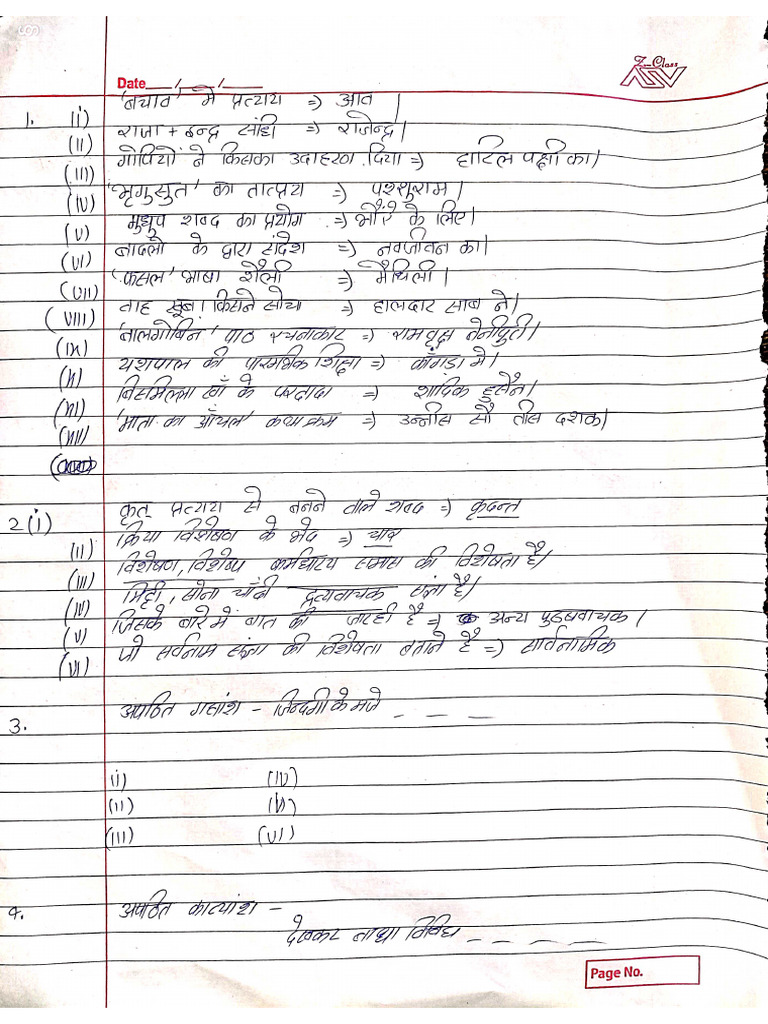 Date
Z-Class
1. (i) 'बचाव' में प्रत्यय => आव |
(ii) राजा + इन्द्र संधि => राजेन्द्र |
(iii) गोपियों ने किसका उदाहरण दिया => हारिल पक्षी का |
(iv) 'भृगुसुत' का तात्पर्य => परशुराम |
(v) मधुप शब्द का प्रयोग => भौंरे के लिए |
(vi) बादलों के द्वारा संदेश => नवजीवन का |
(vii) 'फसल' भाषा शैली => मैथिली |
(viii) वाह खूब! किसने सोचा => हालदार साब ने |
(ix) 'बालगोबिन' पाठ रचनाकार => रामवृक्ष बेनीपुरी |
(x) यशपाल की प्रारम्भिक शिक्षा => काँगड़ा में |
(xi) बिसमिल्ला खाँ के परदादा => हुसैन |
(xii) 'माता का आँचल' कथाक्रम => उन्नीस सौ तीस दशक |
2 (i) कृत् प्रत्यय से बनने वाले शब्द => कृदन्त
(ii) क्रिया विशेषण के भेद => चार
(iii) विशेषण, विशेष्य कर्मधारय समास की विशेषता है |
(iv) मिट्टी, सोना चाँदी द्रव्यवाचक संज्ञा है |
(v) जिसके बारे में बात की जा रही है => अन्य पुरुषवाचक |
(vi) जो सर्वनाम संज्ञा की विशेषता बताने है => सार्वनामिक
3. अपठित गद्यांश - जिन्दगी के मजे _ _ _
i) (iv)
(ii) (v)
(iii) (vi)
4. अपठित काव्यांश -
देखकर बाधा विविध _ _ _ _
Page No.